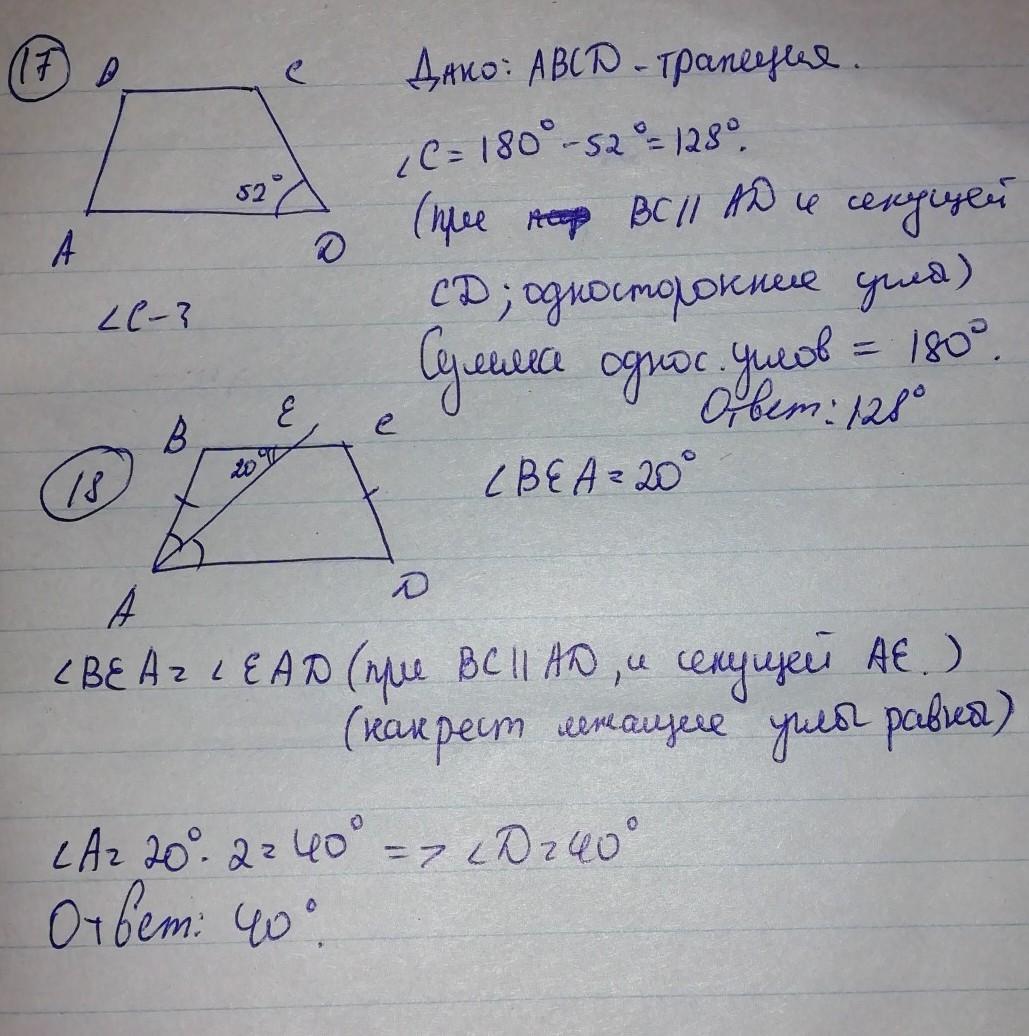 17 D C Дано: ABCD - трапеция.
∠C = 180° - 52° = 128°.
52°
(при BC || AD и секущей
A D
CD; односторонние угла)
∠C - ?
Сумма однос. углов = 180°.
Ответ: 128°
18 B E C
20° ∠BEA = 20°
A D
∠BEA = ∠EAD (при BC || AD, и секущей AE.)
(накрест лежащие углы равны)
∠A = 20° · 2 = 40° => ∠D = 40°
Ответ: 40°.